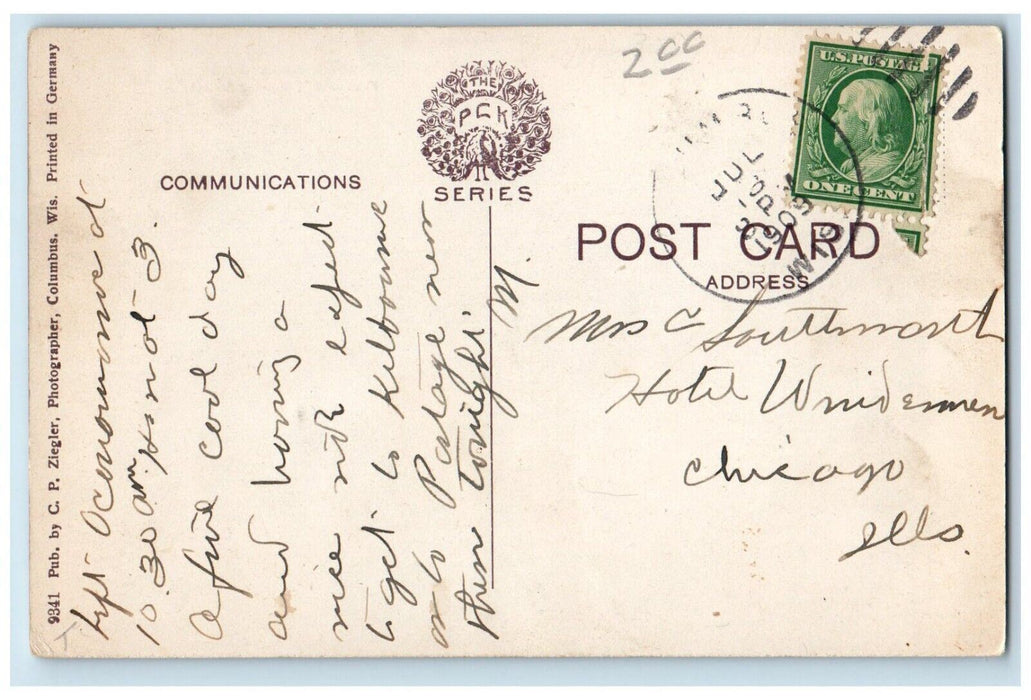 9341 Pub. by C. P. Ziegler, Photographer, Columbus. Wis. Printed in Germany
COMMUNICATIONS
THE
PCK
SERIES
2 00
U.S. POSTAGE
ONE CENT
JUL
9 PM
WIS
POST CARD
ADDRESS
Left Oconomowoc at
10.30 am
a fine cool day
and having a
nice ride expect
to get to Kilbourne
or to Portage
then tonight. M.
Mrs C Southworth
Hotel
Chicago
Ills.